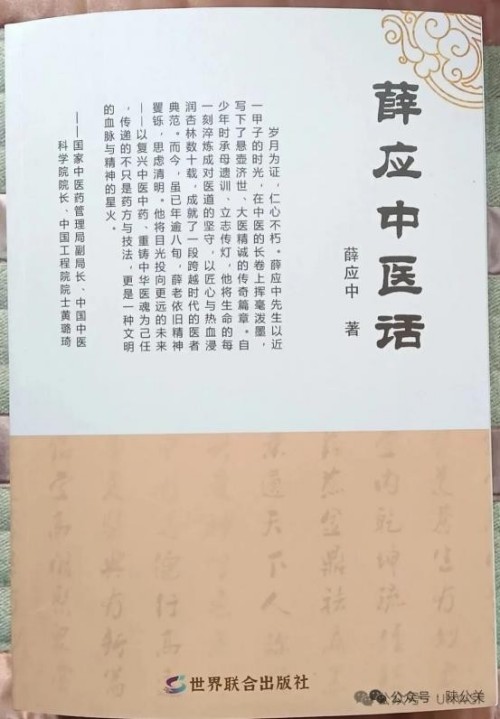 薛应中医话
薛应中 著
岁月为证，仁心不朽。薛应中先生以近
一甲子的时光，在中医的长卷上挥毫泼墨，
写下了悬壶济世、大医精诚的传奇篇章。自
少年时承母遗训、立志传灯，他将生命的每
一刻淬炼成对医道的坚守，以匠心与热血浸
润杏林数十载，成就了一段跨越时代的医者
典范。而今，虽已年逾八旬，薛老依旧精神
矍铄，思虑清明。他将目光投向更远的未来
——以复兴中医中药、重铸中华医魂为己任
，传递的不只是药方与技法，更是一种文明
的血脉与精神的星火。
——国家中医药管理局副局长、中国中医
科学院院长、中国工程院院士黄璐琦
世界联合出版社
公众号